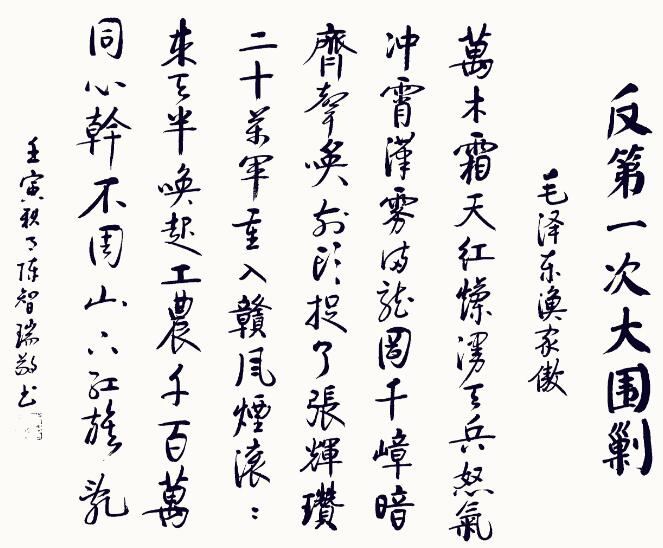 反第一次大围剿
毛泽东渔家傲
萬木霜天红爛漫天兵怒氣
冲霄漢雾满龙岡千嶂暗
齊聲唤前头捉了張輝瓚
二十萬軍重入贛风煙滚：
来天半唤起工農千百萬
同心幹不周山下红旗乱
壬寅秋月陈智瑞敬书